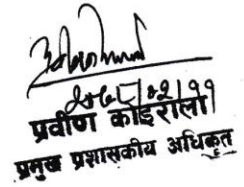 २०८५/०२/११
प्रवीण कोइराला
प्रमुख प्रशासकीय अधिकृत